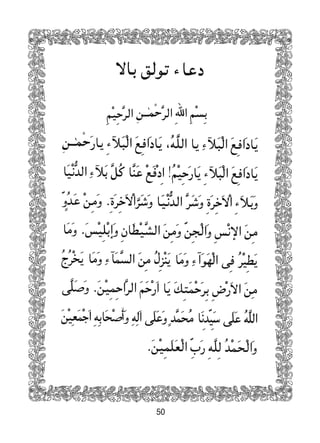 دعاء تولق بالا
بِسْمِ اللهِ الرَّحْمٰنِ الرَّحِيْمِ
يَادَافِعَ الْبَلَآءِ يا اللَّهُ، يَادَافِعَ الْبَلَآءِ يارَحْمٰنِ
يَادَافِعَ الْبَلَآءِ يَارَحِيْمُ! اِدْفَعْ عَنَّا كُلَّ بَلَآءِ الدُّنْيَا
وَبَلَآءِ اْلآخِرَةِ وَشَرَّ الدُّنْيَا وَشَرَّاْلآخِرَةِ. وَمِنْ عَدُوٍّ
مِنَ الإنْسِ وَالْجِنِّ وَمِنَ الشَّيْطَانِ وَإِبْلِيْسَ. وَمَا
يَطِيْرُ فِى الْهَوَآءِ وَمَا يَنْزِلُ مِنَ السَّمَآءِ وَمَا يَخْرُجُ
مِنَ الاَرْضِ بِرَحْمَتِكَ يَا اَرْحَمَ الرَّاحِمِيْنَ. وَصَلَّى
اللَّهُ عَلَى سَيِّدِنَا مُحَمَّدٍ وَعَلَى اَلِهِ وَأَصْحَابِهِ اَجْمَعِيْنَ
وَالْحَمْدُ لِلَّهِ رَبِّ الْعَلَمِيْنَ.
50